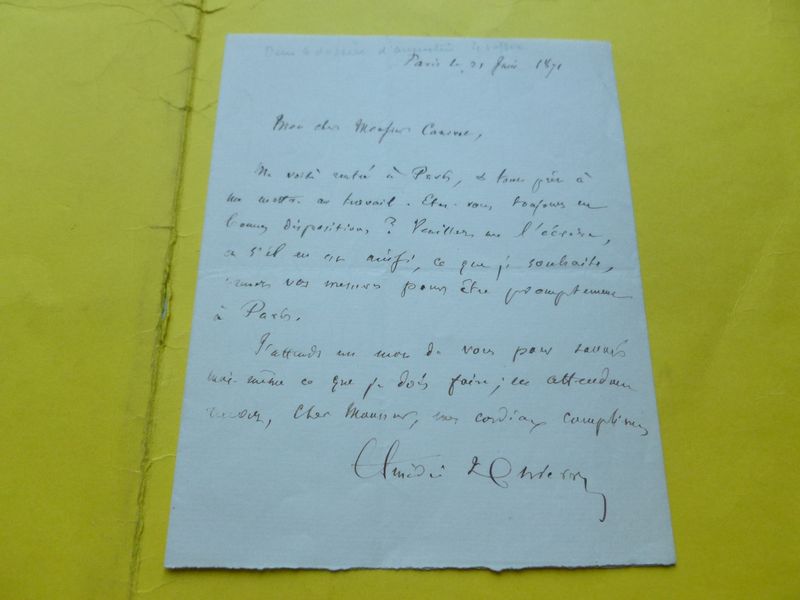 Paris le 21 Juin 1871
Mon cher Monsieur
Me voilà rentré à Paris, & tout prêt à
me mettre au travail. Etes-vous toujours en
bonnes dispositions ? Veuillez me l'écrire,
et s'il en est ainsi, ce que je souhaite,
prenez vos mesures pour être promptement
à Paris.
J'attends un mot de vous pour savoir
moi-même ce que je dois faire ; en attendant
recevez, Cher Monsieur, mes cordiaux compliments
Amédée